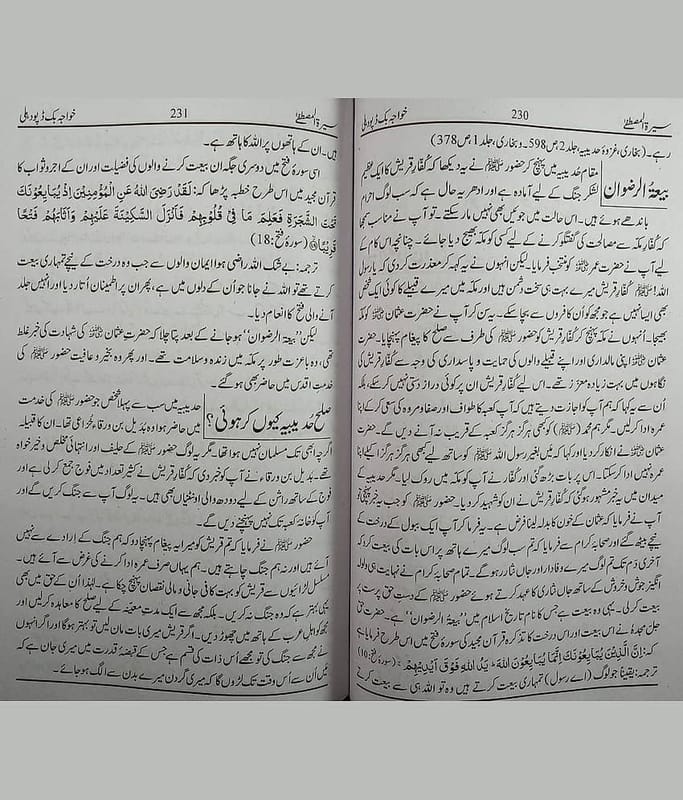 سیرۃ المصطفیٰ 230 خواجہ بک ڈپو دہلی
رہے۔ (بخاری، غزوۂ حدیبیہ، جلد 2 ص 598 و بخاری، جلد 1 ص 378)
بیعۃ الرضوان
مقام حدیبیہ میں پہنچ کر حضور ﷺ نے یہ دیکھا کہ کفار قریش کا ایک عظیم
لشکر جنگ کے لیے آمادہ ہے اور ادھر یہ حال ہے کہ سب لوگ احرام
باندھے ہوئے ہیں۔ اس حالت میں جوئیں بھی نہیں مار سکتے۔ تو آپ نے مناسب سمجھا
کہ کفار مکہ سے مصالحت کی گفتگو کرنے کے لیے کسی کو مکہ بھیج دیا جائے۔ چنانچہ اس کام کے
لیے آپ نے حضرت عمر ؓ کو منتخب فرمایا۔ لیکن انہوں نے یہ کہہ کر معذرت کر دی کہ یا رسول
اللہ! ﷺ کفار قریش میرے بہت ہی سخت دشمن ہیں اور مکہ میں میرے قبیلے کا کوئی ایک شخص
بھی ایسا نہیں ہے جو مجھ کو ان کافروں سے بچا سکے۔ یہ سن کر آپ نے حضرت عثمان ؓ کو مکہ
بھیجا۔ انہوں نے مکہ پہنچ کر کفار قریش کو حضور ﷺ کی طرف سے صلح کا پیغام پہنچایا۔ حضرت
عثمان ؓ اپنی مالداری اور اپنے قبیلے والوں کی حمایت و پاسداری کی وجہ سے کفار قریش کی
نگاہوں میں بہت زیادہ معزز تھے۔ اس لیے کفار قریش ان پر کوئی دراز دستی نہیں کر سکے، بلکہ
اُن سے یہ کہا کہ ہم آپ کو اجازت دیتے ہیں کہ آپ کعبہ کا طواف اور صفا و مروہ کی سعی کر کے اپنا
عمرہ ادا کر لیں۔ مگر ہم محمد (ﷺ) کو کبھی ہرگز ہرگز کعبہ کے قریب نہ آنے دیں گے۔ حضرت
عثمان ؓ نے انکار کر دیا اور کہا کہ میں بغیر رسول اللہ ﷺ کو ساتھ لیے کبھی ہرگز ہرگز اکیلے اپنا
عمرہ نہیں ادا کر سکتا۔ اس پر بات بڑھ گئی اور کفار نے آپ کو مکہ میں روک لیا۔ مگر حدیبیہ کے
میدان میں یہ خبر مشہور ہو گئی کہ کفار قریش نے ان کو شہید کر دیا۔ حضور ﷺ کو جب یہ خبر پہنچی تو
آپ نے فرمایا کہ عثمان کے خون کا بدلہ لینا فرض ہے۔ یہ فرما کر آپ ایک ببول کے درخت کے
نیچے بیٹھ گئے اور صحابہ کرام سے فرمایا کہ تم سب لوگ میرے ہاتھ پر اس بات کی بیعت کرو کہ
آخری دم تک تم لوگ میرے وفادار اور جاں نثار رہو گے۔ تمام صحابہ کرام نے نہایت ہی ولولہ
انگیز جوش و خروش کے ساتھ جاں نثاری کا عہد کرتے ہوئے حضور ﷺ کے دست حق پرست پر
بیعت کر لی۔ یہی وہ بیعت ہے جس کا نام تاریخ اسلام میں ''بیعۃ الرضوان'' ہے۔ حضرت حق
جل مجدہٗ نے اس بیعت اور اس درخت کا تذکرہ قرآن مجید کی سورۂ فتح میں اس طرح فرمایا ہے
کہ: اِنَّ الَّذِیْنَ یُبَایِعُوْنَكَ اِنَّمَا یُبَایِعُوْنَ اللّٰهَ ؕ یَدُ اللّٰهِ فَوْقَ اَیْدِیْهِمْ ۚ (سورۂ فتح: 10)
ترجمہ: یقیناً جو لوگ (اے رسول) تمہاری بیعت کرتے ہیں وہ تو اللہ ہی سے بیعت کرتے
سیرۃ المصطفیٰ 231 خواجہ بک ڈپو دہلی
ہیں۔ ان کے ہاتھوں پر اللہ کا ہاتھ ہے۔
اسی سورۂ فتح میں دوسری جگہ ان بیعت کرنے والوں کی فضیلت اور ان کے اجر و ثواب کا
قرآن مجید میں اس طرح خطبہ پڑھا کہ: لَقَدْ رَضِیَ اللّٰهُ عَنِ الْمُؤْمِنِیْنَ اِذْ یُبَایِعُوْنَكَ
تَحْتَ الشَّجَرَةِ فَعَلِمَ مَا فِیْ قُلُوْبِهِمْ فَاَنْزَلَ السَّكِیْنَةَ عَلَیْهِمْ وَ اَثَابَهُمْ فَتْحًا
قَرِیْبًا ۙ (سورۂ فتح: 18)
ترجمہ: بے شک اللہ راضی ہوا ایمان والوں سے جب وہ درخت کے نیچے تمہاری بیعت
کرتے تھے تو اللہ نے جانا جو اُن کے دلوں میں ہے، پھر ان پر اطمینان اُتار دیا اور انہیں جلد
آنے والی فتح کا انعام دیا۔
لیکن ''بیعۃ الرضوان'' ہو جانے کے بعد پتا چلا کہ حضرت عثمان ؓ کی شہادت کی خبر غلط
تھی، وہ باعزت طور پر مکہ میں زندہ و سلامت تھے۔ اور پھر وہ بخیر و عافیت حضور ﷺ کی
خدمت اقدس میں حاضر بھی ہو گئے۔
صلح حدیبیہ کیوں کر ہوئی؟
حدیبیہ میں سب سے پہلا شخص جو حضور ﷺ کی خدمت
میں حاضر ہوا وہ بدیل بن ورقاء خزاعی تھا۔ ان کا قبیلہ
اگرچہ ابھی تک مسلمان نہیں ہوا تھا۔ مگر یہ لوگ حضور ﷺ کے حلیف اور انتہائی مخلص و خیر خواہ
تھے۔ بدیل بن ورقاء نے آپ کو خبر دی کہ کفار قریش نے کثیر تعداد میں فوج جمع کر لی ہے اور
فوج کے ساتھ راشن کے لیے دودھ والی اونٹنیاں بھی ہیں۔ یہ لوگ آپ سے جنگ کریں گے اور
آپ کو خانہ کعبہ تک نہیں پہنچنے دیں گے۔
حضور ﷺ نے فرمایا کہ تم قریش کو میرا یہ پیغام پہنچا دو کہ ہم جنگ کے ارادے سے نہیں
آئے ہیں اور نہ ہم جنگ چاہتے ہیں۔ ہم یہاں صرف عمرہ ادا کرنے کی غرض سے آئے ہیں۔
مسلسل لڑائیوں سے قریش کو بہت کافی جانی و مالی نقصان پہنچ چکا ہے۔ لہٰذا اُن کے حق میں بھی
یہی بہتر ہے کہ وہ جنگ نہ کریں۔ بلکہ مجھ سے ایک مدت معینہ کے لیے صلح کا معاہدہ کر لیں اور
مجھ کو اہل عرب کے ہاتھ میں چھوڑ دیں۔ اگر قریش میری بات مان لیں تو بہتر ہو گا اور اگر انہوں
نے مجھ سے جنگ کی تو مجھے اُس ذات کی قسم ہے جس کے قبضۂ قدرت میں میری جان ہے کہ
میں اُن سے اُس وقت تک لڑوں گا کہ میری گردن میرے بدن سے الگ ہو جائے۔